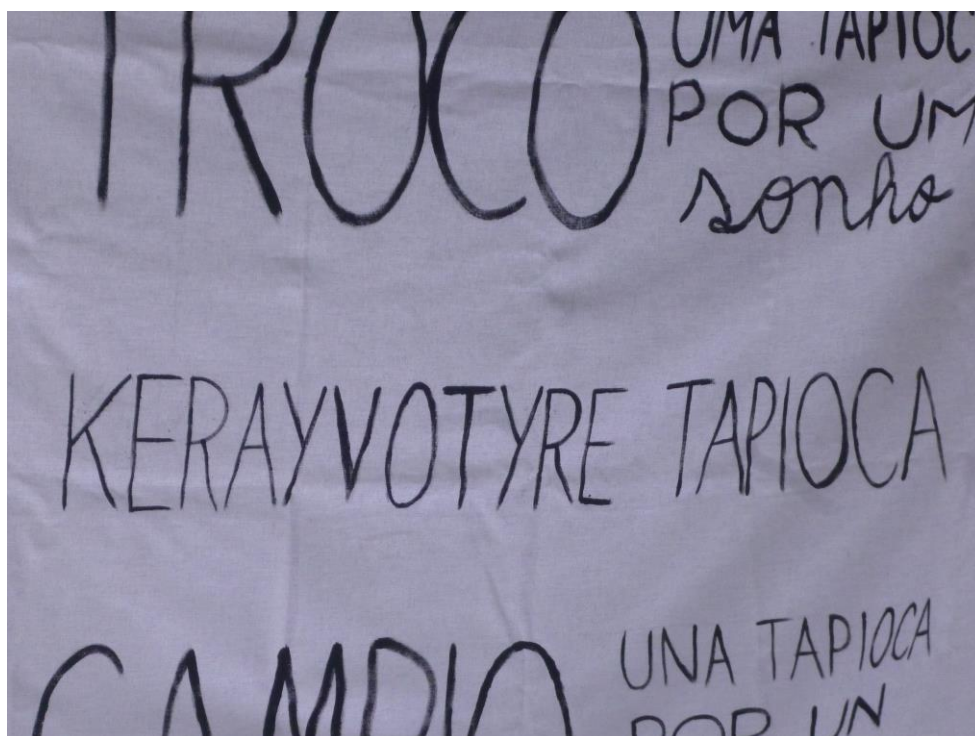 TROCO
UMA TAPIOC
POR UM
sonho
KERAYVOTYRE TAPIOCA
CAMBIO
UNA TAPIOCA
POR UN